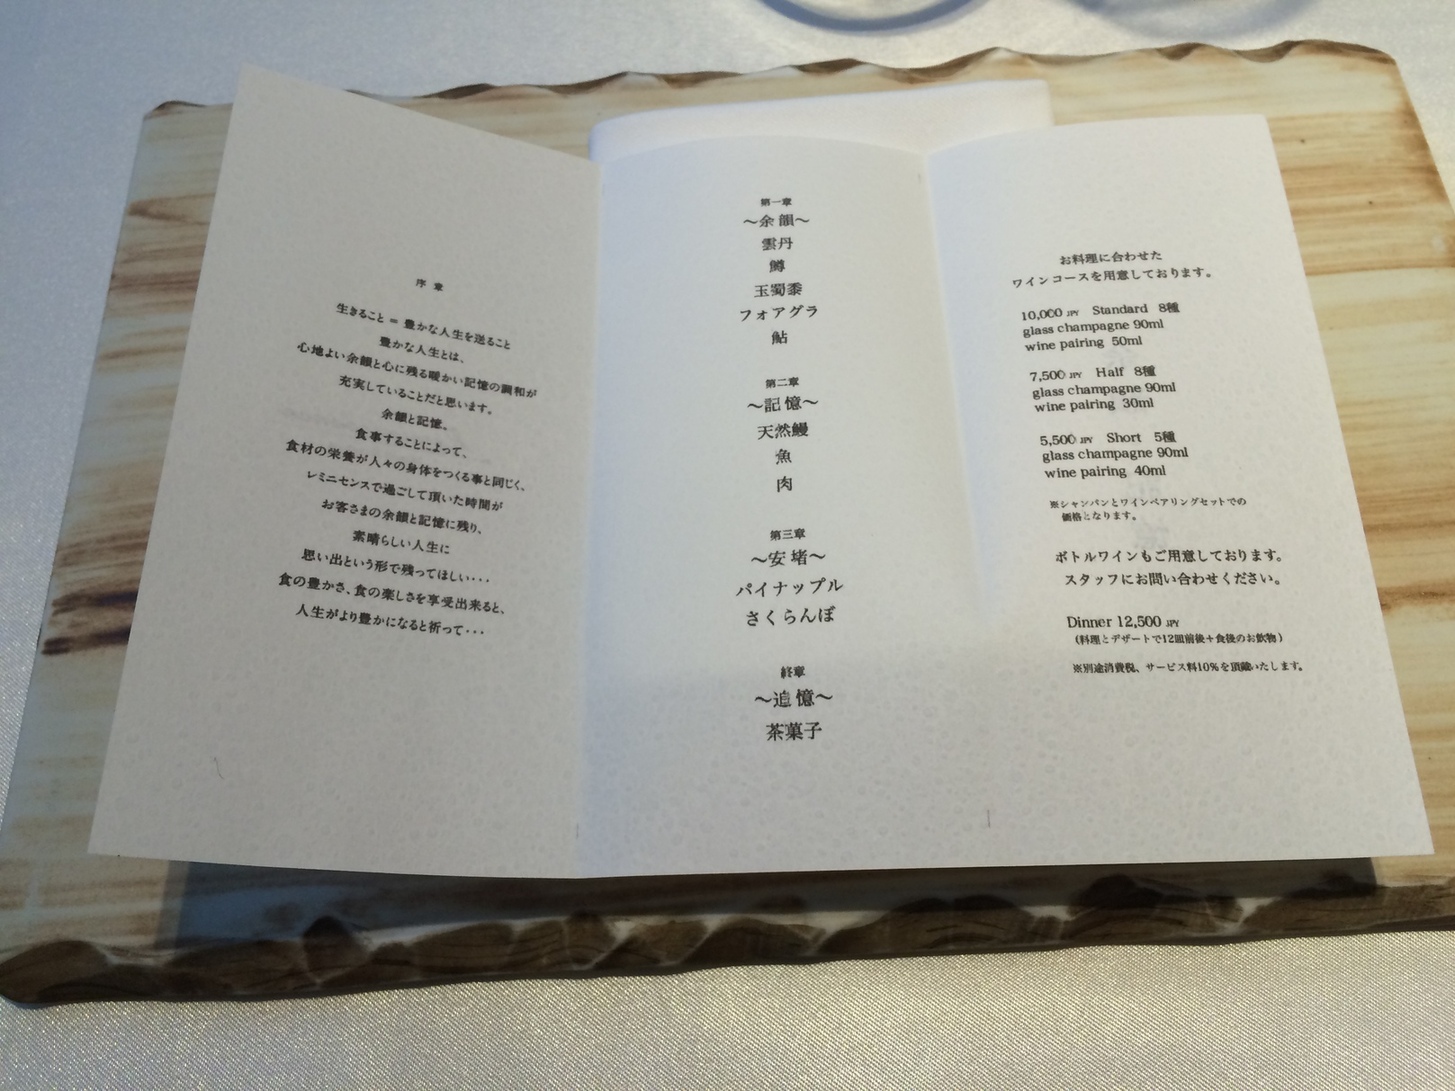 序 章
生きること = 豊かな人生を送ること
豊かな人生とは、
心地よい余韻と心に残る暖かい記憶の調和が
充実していることだと思います。
余韻と記憶、
食事することによって、
食材の栄養が人々の身体をつくる事と同じく、
レミニセンスで過ごして頂いた時間が
お客さまの余韻と記憶に残り、
素晴らしい人生に
思い出という形で残ってほしい・・・
食の豊かさ、食の楽しさを享受出来ると、
人生がより豊かになると祈って・・・
第一章
～余 韻～
雲丹
鱒
玉蜀黍
フォアグラ
鮎
第二章
～記 憶～
天然鰻
魚
肉
第三章
～安 堵～
パイナップル
さくらんぼ
終章
～追 憶～
茶菓子
お料理に合わせた
ワインコースを用意しております。
10,000 JPY Standard 8種
glass champagne 90ml
wine pairing 50ml
7,500 JPY Half 8種
glass champagne 90ml
wine pairing 30ml
5,500 JPY Short 5種
glass champagne 90ml
wine pairing 40ml
※シャンパンとワインペアリングセットでの
価格となります。
ボトルワインもご用意しております。
スタッフにお問い合わせください。
Dinner 12,500 JPY
(料理とデザートで12皿前後+食後のお飲物)
※別途消費税、サービス料10%を頂戴いたします。